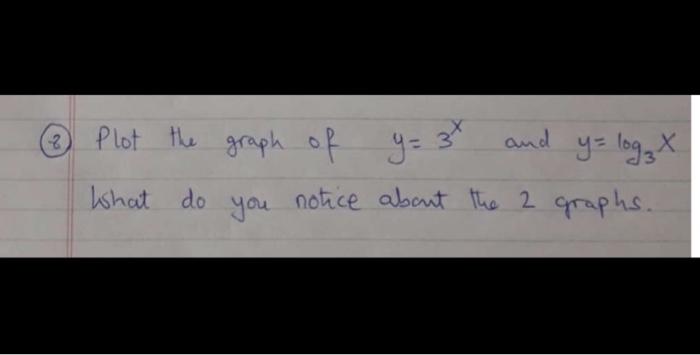 ⑧ Plot the graph of y = 3ˣ and y = log₃X
What do you notice about the 2 graphs.